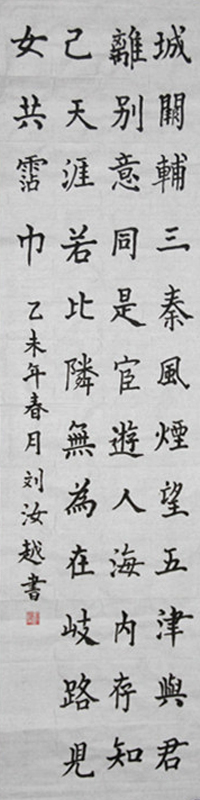 城闕輔三秦風煙望五津與君
離別意同是宦遊人海內存知
己天涯若比隣無為在岐路見
女共霑巾
乙未年春月刘汝越書